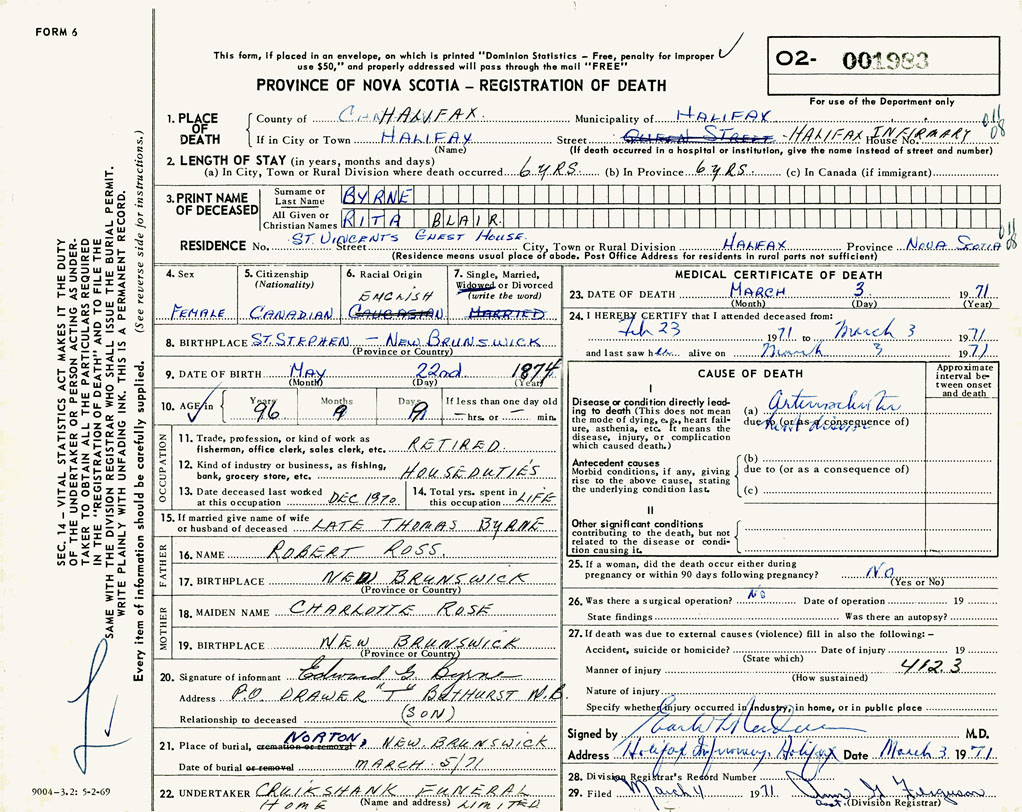 FORM 6
This form, if placed in an envelope, on which is printed "Dominion Statistics – Free, penalty for improper
use $50," and properly addressed will pass through the mail "FREE"
PROVINCE OF NOVA SCOTIA – REGISTRATION OF DEATH
O2- 001983
For use of the Department only
1. PLACE OF DEATH
County of HALIFAX. Municipality of HALIFAX
If in City or Town HALIFAX Street QUEEN STREET HALIFAX INFIRMARY House No.
(Name) (If death occurred in a hospital or institution, give the name instead of street and number)
2. LENGTH OF STAY (in years, months and days)
(a) In City, Town or Rural Division where death occurred 6 YRS. (b) In Province 6 YRS. (c) In Canada (if immigrant)
3. PRINT NAME OF DECEASED
Surname or Last Name BYRNE
All Given or Christian Names RITA BLAIR.
RESIDENCE No. ST. VINCENTS GUEST HOUSE. Street City, Town or Rural Division HALIFAX Province NOVA SCOTIA
(Residence means usual place of abode. Post Office Address for residents in rural parts not sufficient)
4. Sex
FEMALE
5. Citizenship
(Nationality)
CANADIAN
6. Racial Origin
ENGLISH
CAUCASIAN
7. Single, Married,
Widowed or Divorced
(write the word)
MARRIED
8. BIRTHPLACE ST. STEPHEN – NEW BRUNSWICK
(Province or Country)
9. DATE OF BIRTH MAY 22nd 1874
(Month) (Day) (Year)
10. AGE in Years 96 Months Days If less than one day old
– hrs. or – min.
OCCUPATION
11. Trade, profession, or kind of work as
fisherman, office clerk, sales clerk, etc. RETIRED
12. Kind of industry or business, as fishing,
bank, grocery store, etc. HOUSEDUTIES
13. Date deceased last worked
at this occupation DEC 1970
14. Total yrs. spent in
this occupation LIFE
15. If married give name of wife
or husband of deceased LATE THOMAS BYRNE
FATHER
16. NAME ROBERT ROSS.
17. BIRTHPLACE NEW BRUNSWICK
(Province or Country)
MOTHER
18. MAIDEN NAME CHARLOTTE ROSE
19. BIRTHPLACE NEW BRUNSWICK
(Province or Country)
20. Signature of informant Edward G. Byrne
Address P.O. DRAWER "T" BATHURST N.B.
Relationship to deceased (SON)
21. Place of burial, cremation or removal NORTON, NEW BRUNSWICK
Date of burial or removal MARCH 5/71
22. UNDERTAKER CRUIKSHANK FUNERAL
HOME (Name and address) LIMITED
MEDICAL CERTIFICATE OF DEATH
23. DATE OF DEATH MARCH 3 1971
(Month) (Day) (Year)
24. I HEREBY CERTIFY that I attended deceased from:
Feb 23 1971 to March 3 1971
and last saw her alive on March 3 1971
CAUSE OF DEATH
Approximate interval between onset and death
I
Disease or condition directly leading
to death (This does not mean
the mode of dying, e.g., heart failure,
asthenia, etc. It means the
disease, injury, or complication
which caused death.)
(a)
due to (or as a consequence of)
heart disease
Antecedent causes
Morbid conditions, if any, giving
rise to the above cause, stating
the underlying condition last.
(b)
due to (or as a consequence of)
(c)
II
Other significant conditions
contributing to the death, but not
related to the disease or condition
causing it.
25. If a woman, did the death occur either during
pregnancy or within 90 days following pregnancy? NO
(Yes or No)
26. Was there a surgical operation? NO Date of operation 19
State findings Was there an autopsy?
27. If death was due to external causes (violence) fill in also the following: –
Accident, suicide or homicide? Date of injury 19
(State which)
Manner of injury 412.3
(How sustained)
Nature of injury
Specify whether injury occurred in industry, in home, or in public place
Signed by M.D.
Address Halifax Infirmary, Halifax Date March 3 1971
28. Division Registrar's Record Number
29. Filed March 4 1971 Ferguson
asst. (Division Registrar)
SEC. 14 – VITAL STATISTICS ACT MAKES IT THE DUTY
OF THE UNDERTAKER OR PERSON ACTING AS UNDERTAKER
TO OBTAIN ALL THE PARTICULARS REQUIRED
IN THE "REGISTRATION OF DEATH" AND TO FILE THE
SAME WITH THE DIVISION REGISTRAR WHO SHALL ISSUE THE BURIAL PERMIT.
WRITE PLAINLY WITH UNFADING INK. THIS IS A PERMANENT RECORD.
Every item of information should be carefully supplied. (See reverse side for instructions.)
9004-3.2: 5-2-69